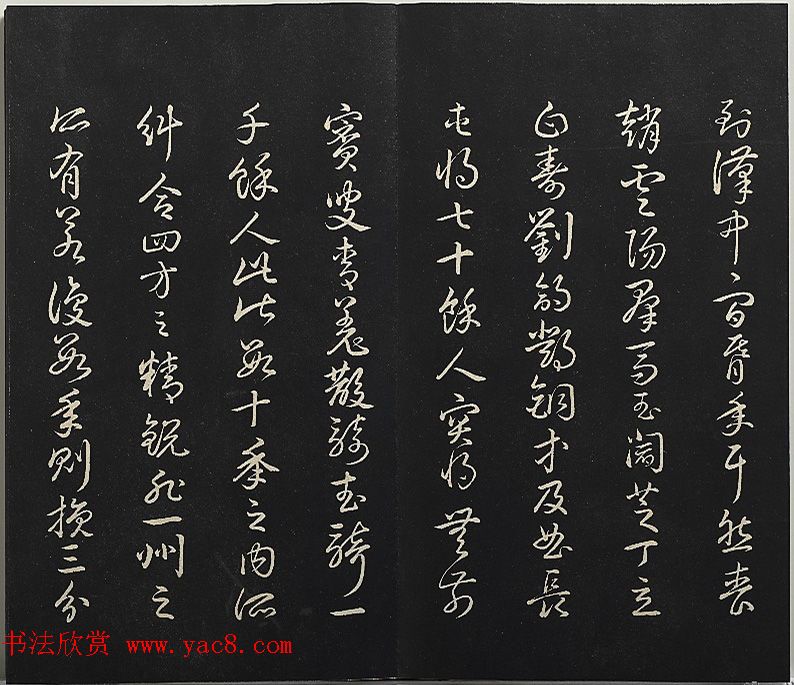 到漢中中間朞年耳然喪
趙雲陽群馬玉閻芝丁立
白壽劉郃鄧銅等及曲長
屯將七十餘人突將無前
賨叟青羌散騎武騎一
千餘人此皆數十年之內所
糾合四方之精銳非一州之
所有若復數年則損三分
书法欣赏 www.yac8.com